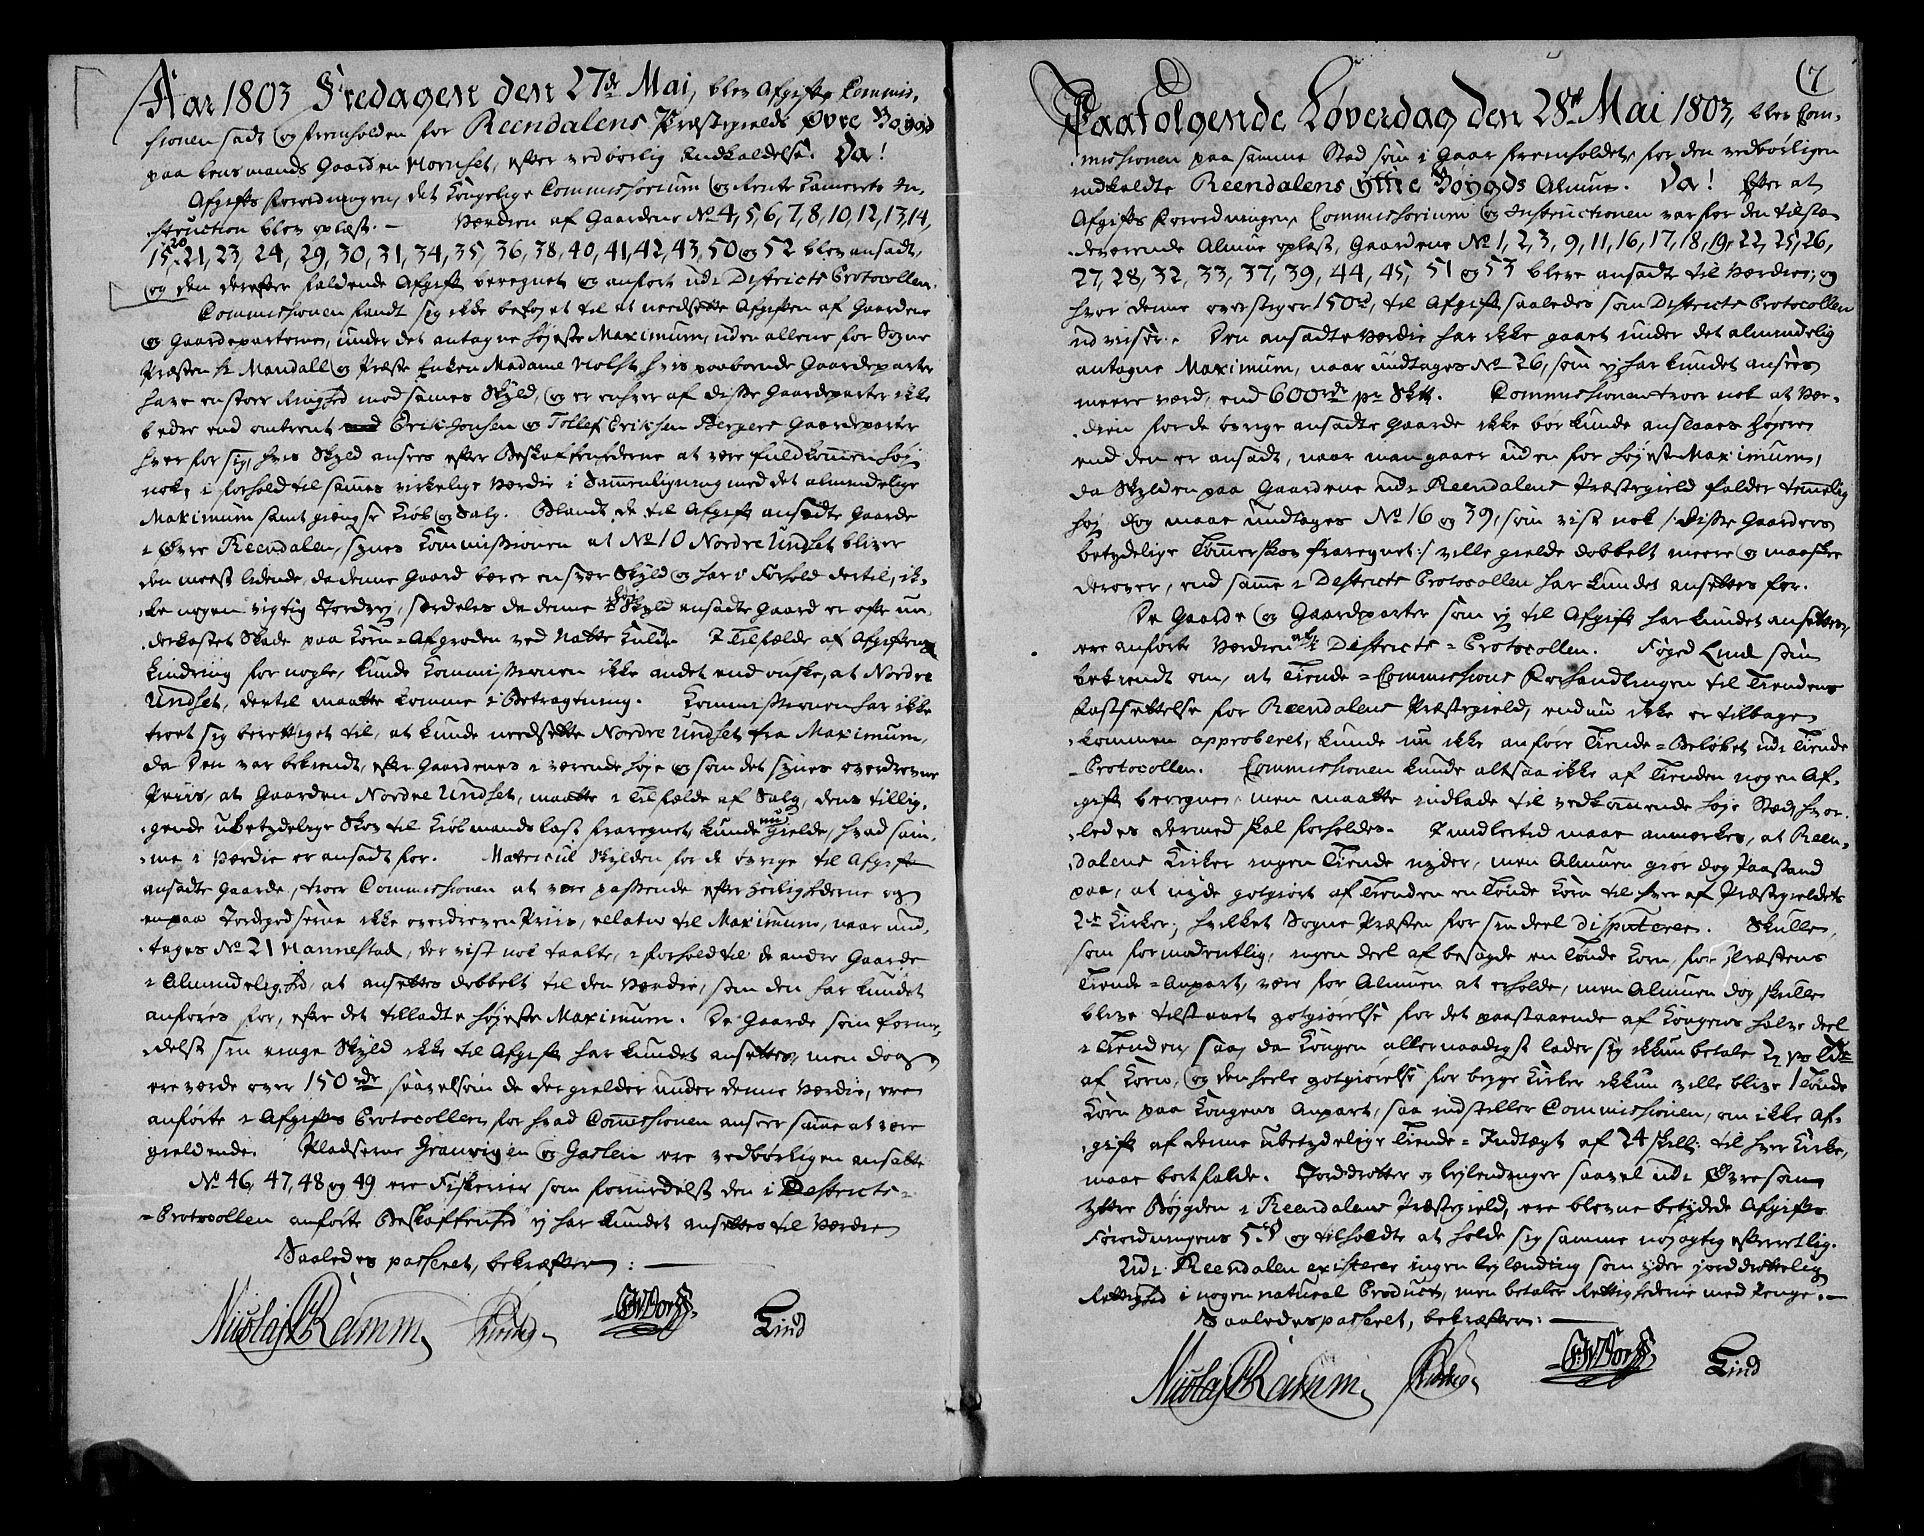 Aar 1803 Fredagen den 27de Mai, blev Afgifts Commis-
sionen sadt og fremholden for Reendalens Præstegields Øvre Bøygd
paa Lensmands Gaarden Hornset, efter vedbørlig Indkaldelse. Da!
Afgifts Forordningen, det Kongelige Commissorium og Rente Kamerets In-
struction blev oplæst. - Værdien af Gaardene No 4, 5, 6, 7, 8, 10, 12, 13, 14,
15, 20, 21, 23, 24, 29, 30, 31, 34, 35, 36, 38, 40, 41, 42, 43, 50 og 52 blev ansadt,
og den derefter faldende Afgift beregnet og anført udi Districts Protocollen.
Commissionen fandt sig ikke beføyet til at needsette Afgiften af Gaardene
og Gaardeparterne, under det antagne højeste Maximum, uden allene for Sogne
Præsten Hr Mandall og Præste Enken Madame Holst hvis paaboende Gaardeparter
have en stor Ringhed mod sammes Skyld, og er enhver af disse Gaardeparter ikke
bedre end omtrent Erik Jonsen og Tollef Eriksen Bergers Gaardeparter
hver for sig, hvis Skyld ansees efter Beskaffenhederne at være fuldkommen høj
nok, i forhold til sammes virkelige Værdie i Sammenligning med det almindelige
Maximum samt giængse Kiøb og Salg. Blandt de til Afgift ansadte Gaarde
i Øvre Reendalen, synes Commissionen at No 10 Nordre Undset bliver
den meest lidende, da denne Gaard bærer en svær Skyld og har i Forhold dertil, ik-
ke nogen vigtig Jordvej, særdeles da denne høj Skyld ansadte Gaard er ofte un-
derkastet Skade paa Korn-Afgrøden ved Natte Kulde. I Tilfælde af Afgiftens
Lindring for nogle, kunde Commissionen ikke andet end ønske, at Nordre
Undset, dertil maatte komme i Betragtning. Kommissionen har ikke
troet sig berettiget til, at kunde needsette Nordre Undset fra Maximum,
da den var bekiendt, efter Gaardenes i værende høje og som det synes overdrevne
Priis, at Gaarden Nordre Undset, maatte i Tilfælde af Salg, dens tillig-
gende ubetydelige Skov til Kiøbmandslast fraregnet, kunde nu gielde, hvad sam-
me i Værdie er ansadt for. Matricul Skylden for de øvrige til Afgift
ansadte Gaarde, troer Commissionen at være passende efter Herlighederne og
en paa Jordegodserne ikke overdreven Priis, relativ til Maximum, naar und-
tages No 21 Hannestad, der vist nok taalte, i forhold til de andre Gaarde
i Almindelighed, at ansettes dobbelt til den Værdie, som den har kundet
anføres for, efter det tilladte højeste Maximum. De Gaarde som forme-
delst sin ringe Skyld ikke til Afgift har kundet ansettes, men dog
ere værde over 150 rdr saavelsom de der gielder under denne Værdie, ere
anførte i Afgifts Protocollen for hvad Commissionen anseer samme at være
gieldende. Pladserne Granvigen og Gaslien ere vedbørligen ansatte
No 46, 47, 48 og 49 ere Fiskerier som formedelst den i Districts-
Protocollen anførte Beskaffenhed ej har kundet ansettes til Værdie
Saaledes passeret, bekræfter: -
Nicolaj Ramm Lind

(7
Paafølgende Løverdag den 28de Mai 1803, blev Com-
missionen paa samme Stad som i Gaar fremholdet, for den vedbørligen
indkaldte Reendalens Ÿttre Bøygds Almue. Da! Efter at
Afgifts Forordningen, Commissorium og Instructionen var for den tilste-
deværende Almue oplæst, Gaardene No 1, 2, 3, 9, 11, 16, 17, 18, 19, 22, 25, 26,
27, 28, 32, 33, 37, 39, 44, 45, 51 og 53 bleve ansadte til Værdier; og
hvor denne overstiger 150 rd, til Afgift saaledes som Districts Protocollen
udviser. Den ansadte Værdie har ikke gaaet under det almindelig
antagne Maximum, naar undtages No 26, som ej har kundet ansees
meere værd, end 600 rdr pr Skl. Commissionen troer nok at Vær-
dien for de øvrige ansadte Gaarde ikke bør kunde anslaaes højere
end den er ansadt, naar man gaaer uden for højeste Maximum,
da Skylden paa Gaardene udi Reendalens Præstegield falder temmelig
høj dog maae undtages No 16 og 39, som vist nok /: disse Gaarders
betydelige Tømmerskov fraregnet :/ ville gielde dobbelt meere og maaskee
derover, end samme i Districts Protocollen har kundet ansettes for.
De Gaarde og Gaardeparter som ej til Afgift har kundet ansettes
ere anførte Værdien i Districts-Protocollen. Foged Lind som
bekiendt om, at Tiende-Commissions Forhandlingen til Tiendens
Fastsettelse for Reendalens Præstegield, endnu ikke er tilbage-
kommen approberet, kunde nu ikke anføre Tiende-Beløbet udi Tiende
-Protocollen. Commissionen kunde altsaa ikke af Tienden nogen Af-
gift beregne, men maatte indlade til vedkommende høje Stæd, hvor-
ledes dermed skal forholdes. Imidlertid maae anmærkes, at Reen-
dalens Kirker ingen Tiende nyder, men Almuen giør dog Paastand
paa, at nyde godtgiort af Tienden en Tønde Korn til hver af Præstegieldets
2de Kirker, hvilket Sogne Præsten for sin deel disputerer. Skulle,
som formodentlig, ingen deel af besagde en Tønde Korn, for Præstens
Tiende-Anpart, være for Almuen at erholde, men Almuen dog skulle
blive tilstaaet godtgiørelse for det paastaaende af Kongens halve deel
i Tienden, saa, da Kongen allernaadigst lader sig ikkun betale
af Korn, og den heele godtgiørelse for begge Kirker ikkun ville blive 1 Tønde
Korn paa Kongens Anpart, saa indstiller Commissionen, om ikke Af-
gift af denne ubetydelige Tiende-Indtægt af 24 skill: til hver Kirke,
maae bortfalde. Jorddrotter og Leylendinger saavel udi Øvre som
Yttre Bøygden i Reendalens Præstegield, ere blevne betydede Afgifts
Forordningens 5 § og tilholdte at holde sig samme nøjagtig efterrettelig.
Udi Reendalen existerer ingen Leylænding som yder jorddrottelig
Rettighed i nogen natural Product, men betaler Rettighederne med Penge. -
Saaledes passeret, bekræfter: -
Nicolaj Ramm Lind